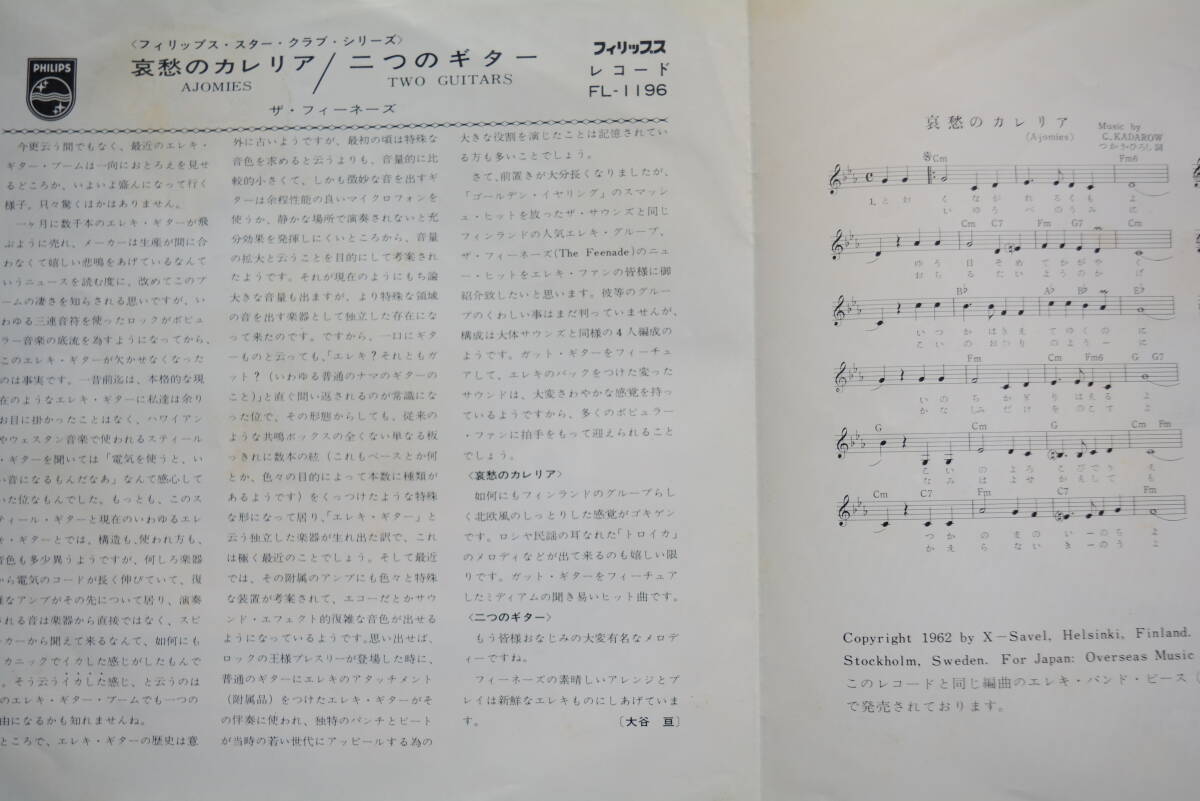 PHILIPS
〈フィリップス・スター・クラブ・シリーズ〉
哀愁のカレリア/二つのギター
AJOMIES TWO GUITARS
ザ・フィーネーズ
フィリップス
レコード
FL-1196
今更云う間でもなく、最近のエレキ・
ギター・ブームは一向におとろえを見せ
るどころか、いよいよ盛んになって行く
様子。只々驚くほかはありません。
一ヶ月に数千本のエレキ・ギターが飛
ぶように売れ、メーカーは生産が間に合
わなくて嬉しい悲鳴をあげているなんて
いうニュースを読む度に、改めてこのブ
ームの凄さを知らされる思いですが、い
わゆる三連音符を使ったロックがポピュ
ラー音楽の底流を為すようになってから、
このエレキ・ギターが欠かせなくなった
のは事実です。一昔前迄は、本格的な現
在のようなエレキ・ギターに私達は余り
お目に掛かったことはなく、ハワイアン
やウェスタン音楽で使われるスティール
・ギターを聞いては「電気を使うと、い
い音になるもんだなあ」なんて感心して
いた位なもんでした。もっとも、このス
ティール・ギターと現在のいわゆるエレ
キ・ギターとでは、構造も、使われ方も、
音色も多少異うようですが、何しろ楽器
から電気のコードが長く伸びていて、復
雑なアンプがその先について居り、演奏
される音は楽器から直接ではなく、スピ
ーカーから聞えて来るなんて、如何にも
カニックでイカした感じがしたもんで
。そう云うイカした感じ、と云うのは
のエレキ・ギター・ブームでも一つの
由になるかも知れませんね。
ところで、エレキ・ギターの歴史は意
外に古いようですが、最初の頃は特殊な
音色を求めると云うよりも、音量的に比
較的小さくて、しかも微妙な音を出すギ
ターは余程性能の良いマイクロフォンを
使うか、静かな場所で演奏されないと充
分効果を発揮しにくいところから、音量
の拡大と云うことを目的にして考案され
たようです。それが現在のようにもち論
大きな音量も出ますが、より特殊な領域
の音を出す楽器として独立した存在にな
って来たのです。ですから、一口にギタ
ーものと云っても、「エレキ?それともガ
ット?(いわゆる普通のナマのギターの
こと)」と直ぐ問い返されるのが常識にな
った位で、その形態からしても、従来の
ような共鳴ボックスの全くない単なる板
っきれに数本の絃(これもベースとか何
とか、色々の目的によって本数に種類が
あるようです)をくっつけたような特殊
な形になって居り、「エレキ・ギター」と
云う独立した楽器が生れ出た訳で、これ
は極く最近のことでしょう。そして最近
では、その附属のアンプにも色々と特殊
な装置が考案されて、エコーだとかサウ
ンド・エフェクト的復雑な音色が出せる
ようになっているようです。思い出せば、
ロックの王様プレスリーが登場した時に、
普通のギターにエレキのアタッチメント
(附属品)をつけたエレキ・ギターがそ
の伴奏に使われ、独特のパンチとビート
が当時の若い世代にアッピールする為の
大きな役割を演じたことは記憶されてい
る方も多いことでしょう。
さて、前置きが大分長くなりましたが、
「ゴールデン・イヤリング」のスマッシ
ュ・ヒットを放ったザ・サウンズと同じ
フィンランドの人気エレキ・グループ、
ザ・フィーネーズ(The Feenade)のニュ
ー・ヒットをエレキ・ファンの皆様に御
紹介致したいと思います。彼等のグルー
プのくわしい事はまだ判っていませんが、
構成は大体サウンズと同様の4人編成の
ようです。ガット・ギターをフィーチュ
アして、エレキのバックをつけた変った
サウンドは、大変さわやかな感覚を持っ
ているようですから、多くのポピュラー
・ファンに拍手をもって迎えられること
でしょう。
〈哀愁のカレリア〉
如何にもフィンランドのグループらし
く北欧風のしっとりした感覚がゴキゲン
です。ロシヤ民謡の耳なれた「トロイカ」
のメロディなどが出て来るのも嬉しい限
りです。ガット・ギターをフィーチュア
したミディアムの聞き易いヒット曲です。
〈二つのギター〉
もう皆様おなじみの大変有名なメロデ
ィーですね。
フィーネーズの素晴しいアレンジとプ
レイは新鮮なエレキものにしあげていま
す。 〔大谷 亘〕
哀愁のカレリア
(Ajomies)
Music by
C. KADAROW
つかさ・ひろし詞
Cm Fm6
1. とお く ながれ るくも よ
いゆうべのうみ に
Cm C7 Fm G7 Cm
ゆう日そめてかがや く
おちるたいようのか げ
B♭ A♭ B♭ E♭
いつかはきえてゆくの に
こいのおわりのよう に
Fm Cm Fm6 G G7
いのちかぎりはえる よ
かなしみだけをのこす よ
G Cm G Cm Fm
こいのよろこびでう え
なみはよせかえして も
Cm C7 Fm C7 Fm
つかのまのいーのち よ
かえらないきーのう よ
Copyright 1962 by X—Savel, Helsinki, Finland.
Stockholm, Sweden. For Japan: Overseas Music
このレコードと同じ編曲のエレキ・バンド・ピース
で発売されております。